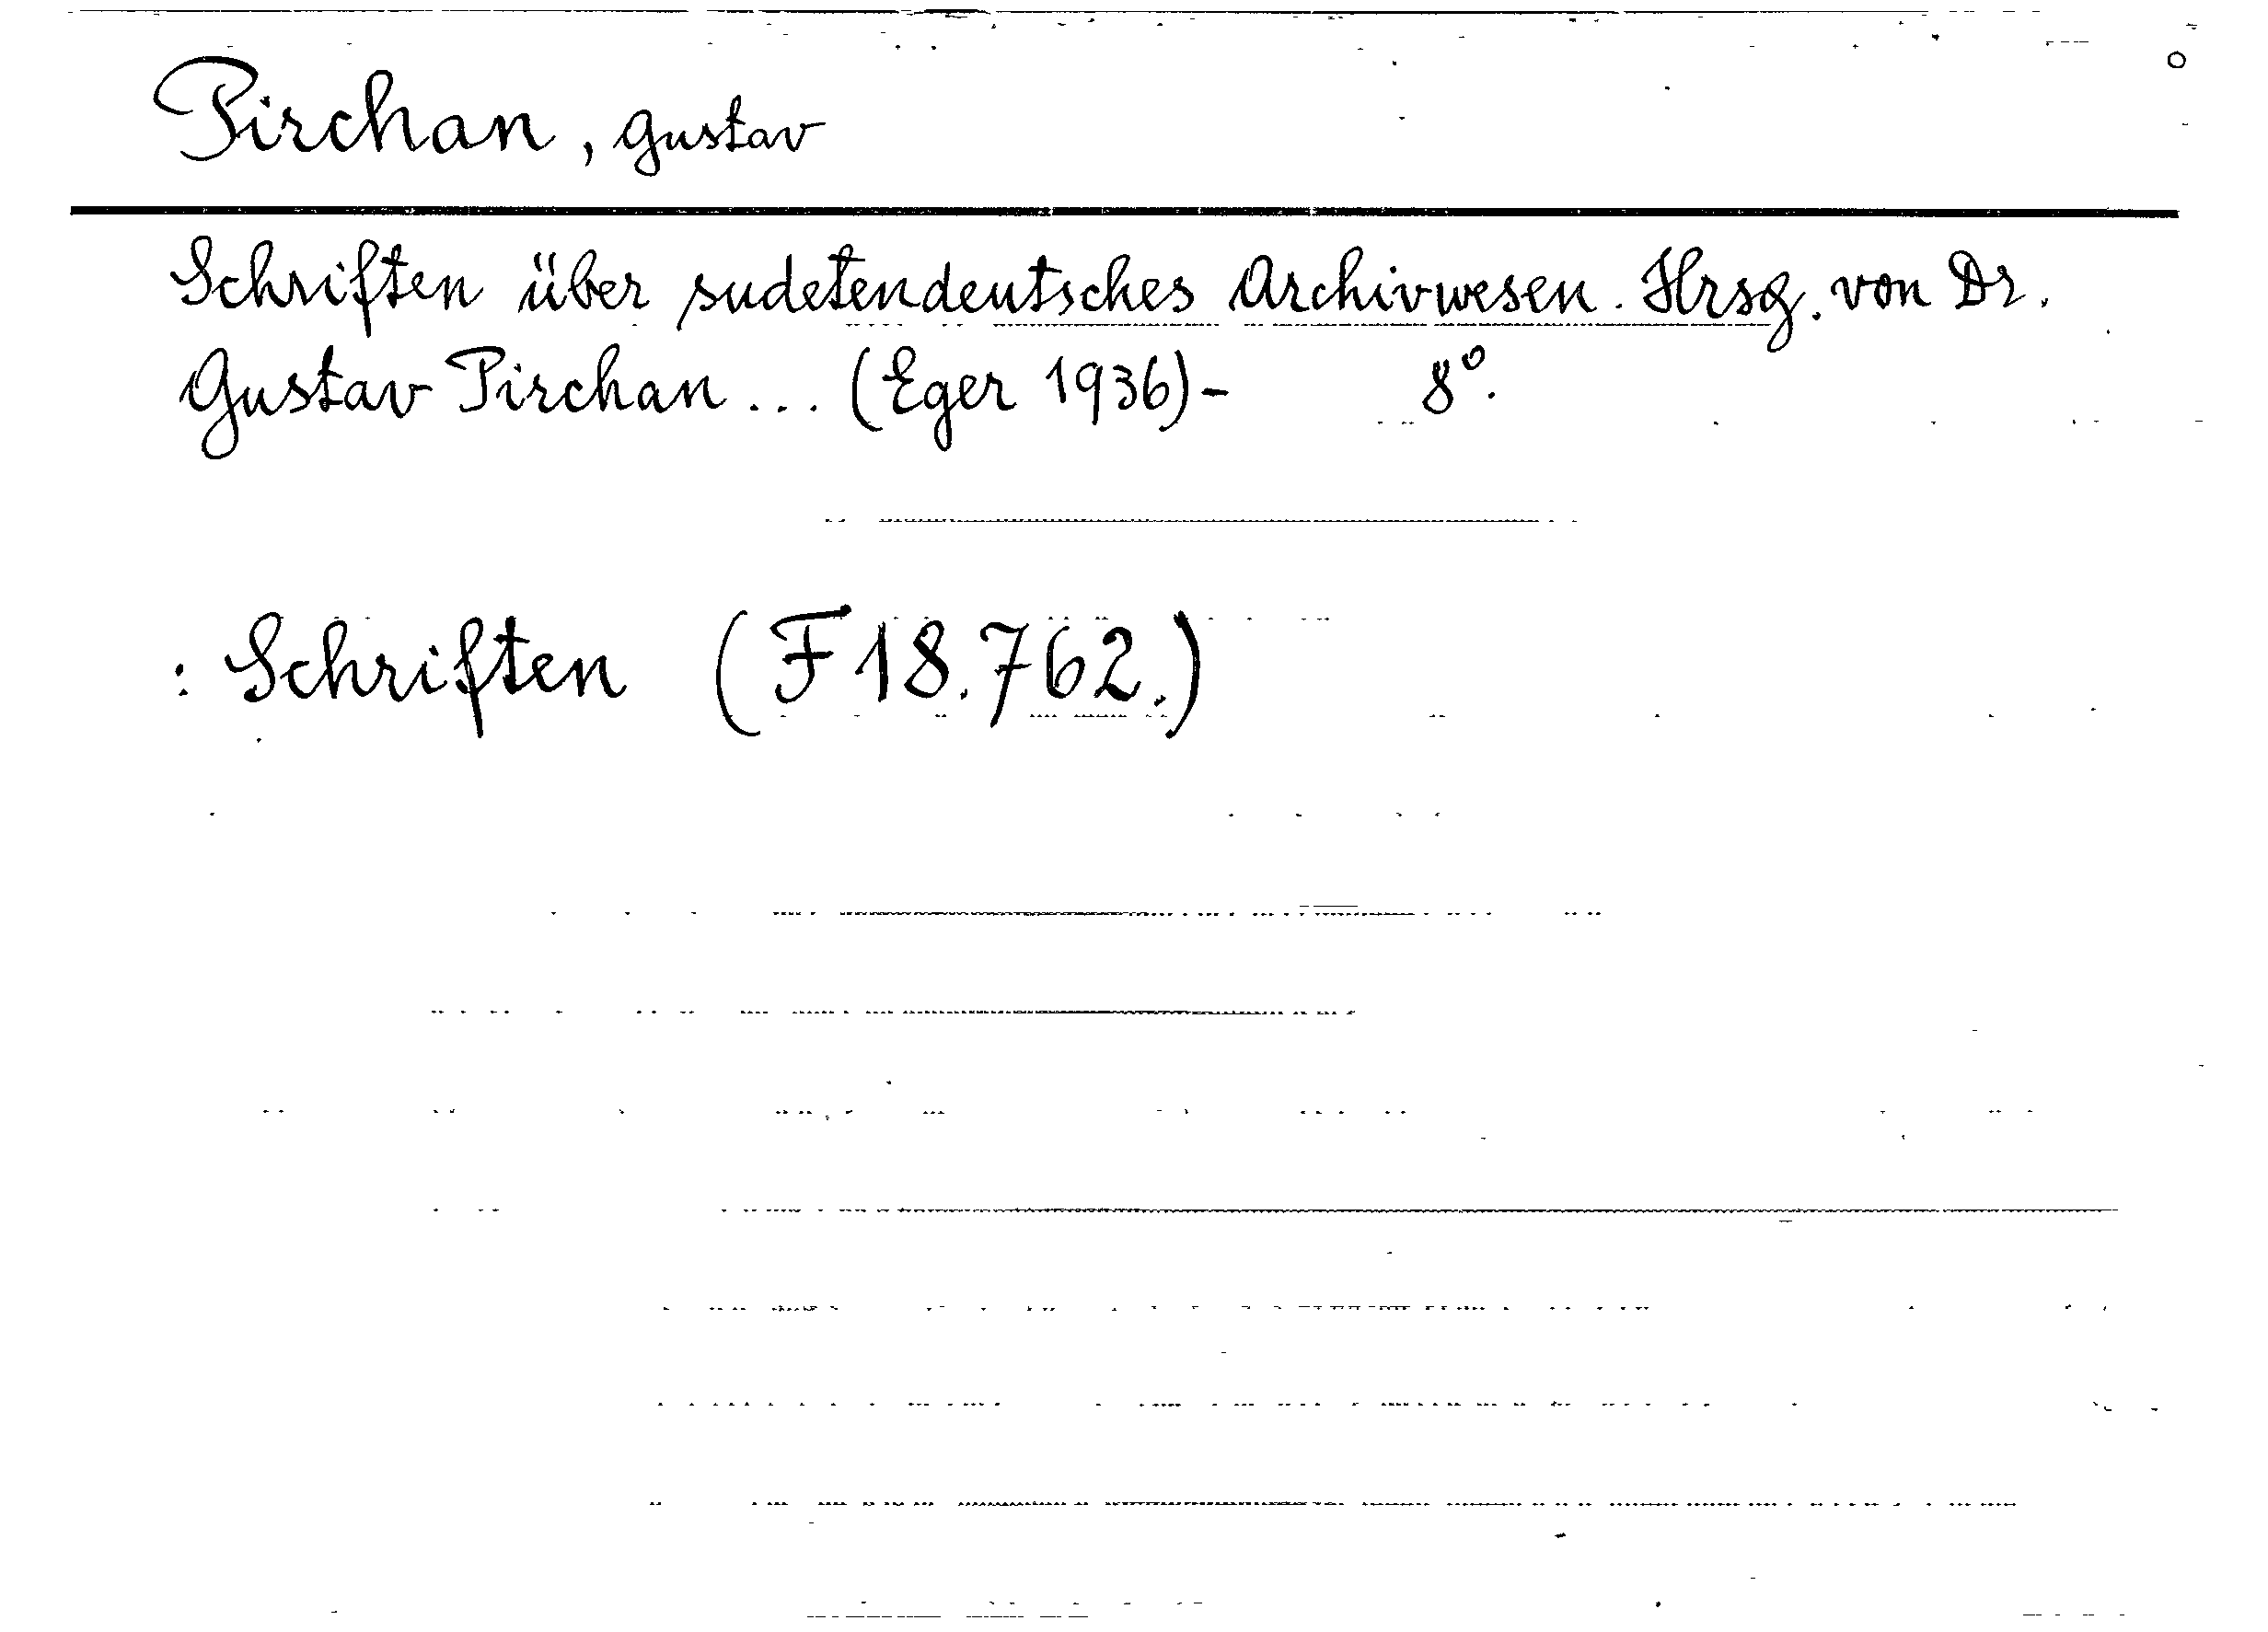 Pirchan, Gustav
Schriften über sudetendeutsches Archivwesen. Hrsg. von Dr.
Gustav Pirchan ... (Eger 1936)- 8°.
: Schriften (F 18.762.)